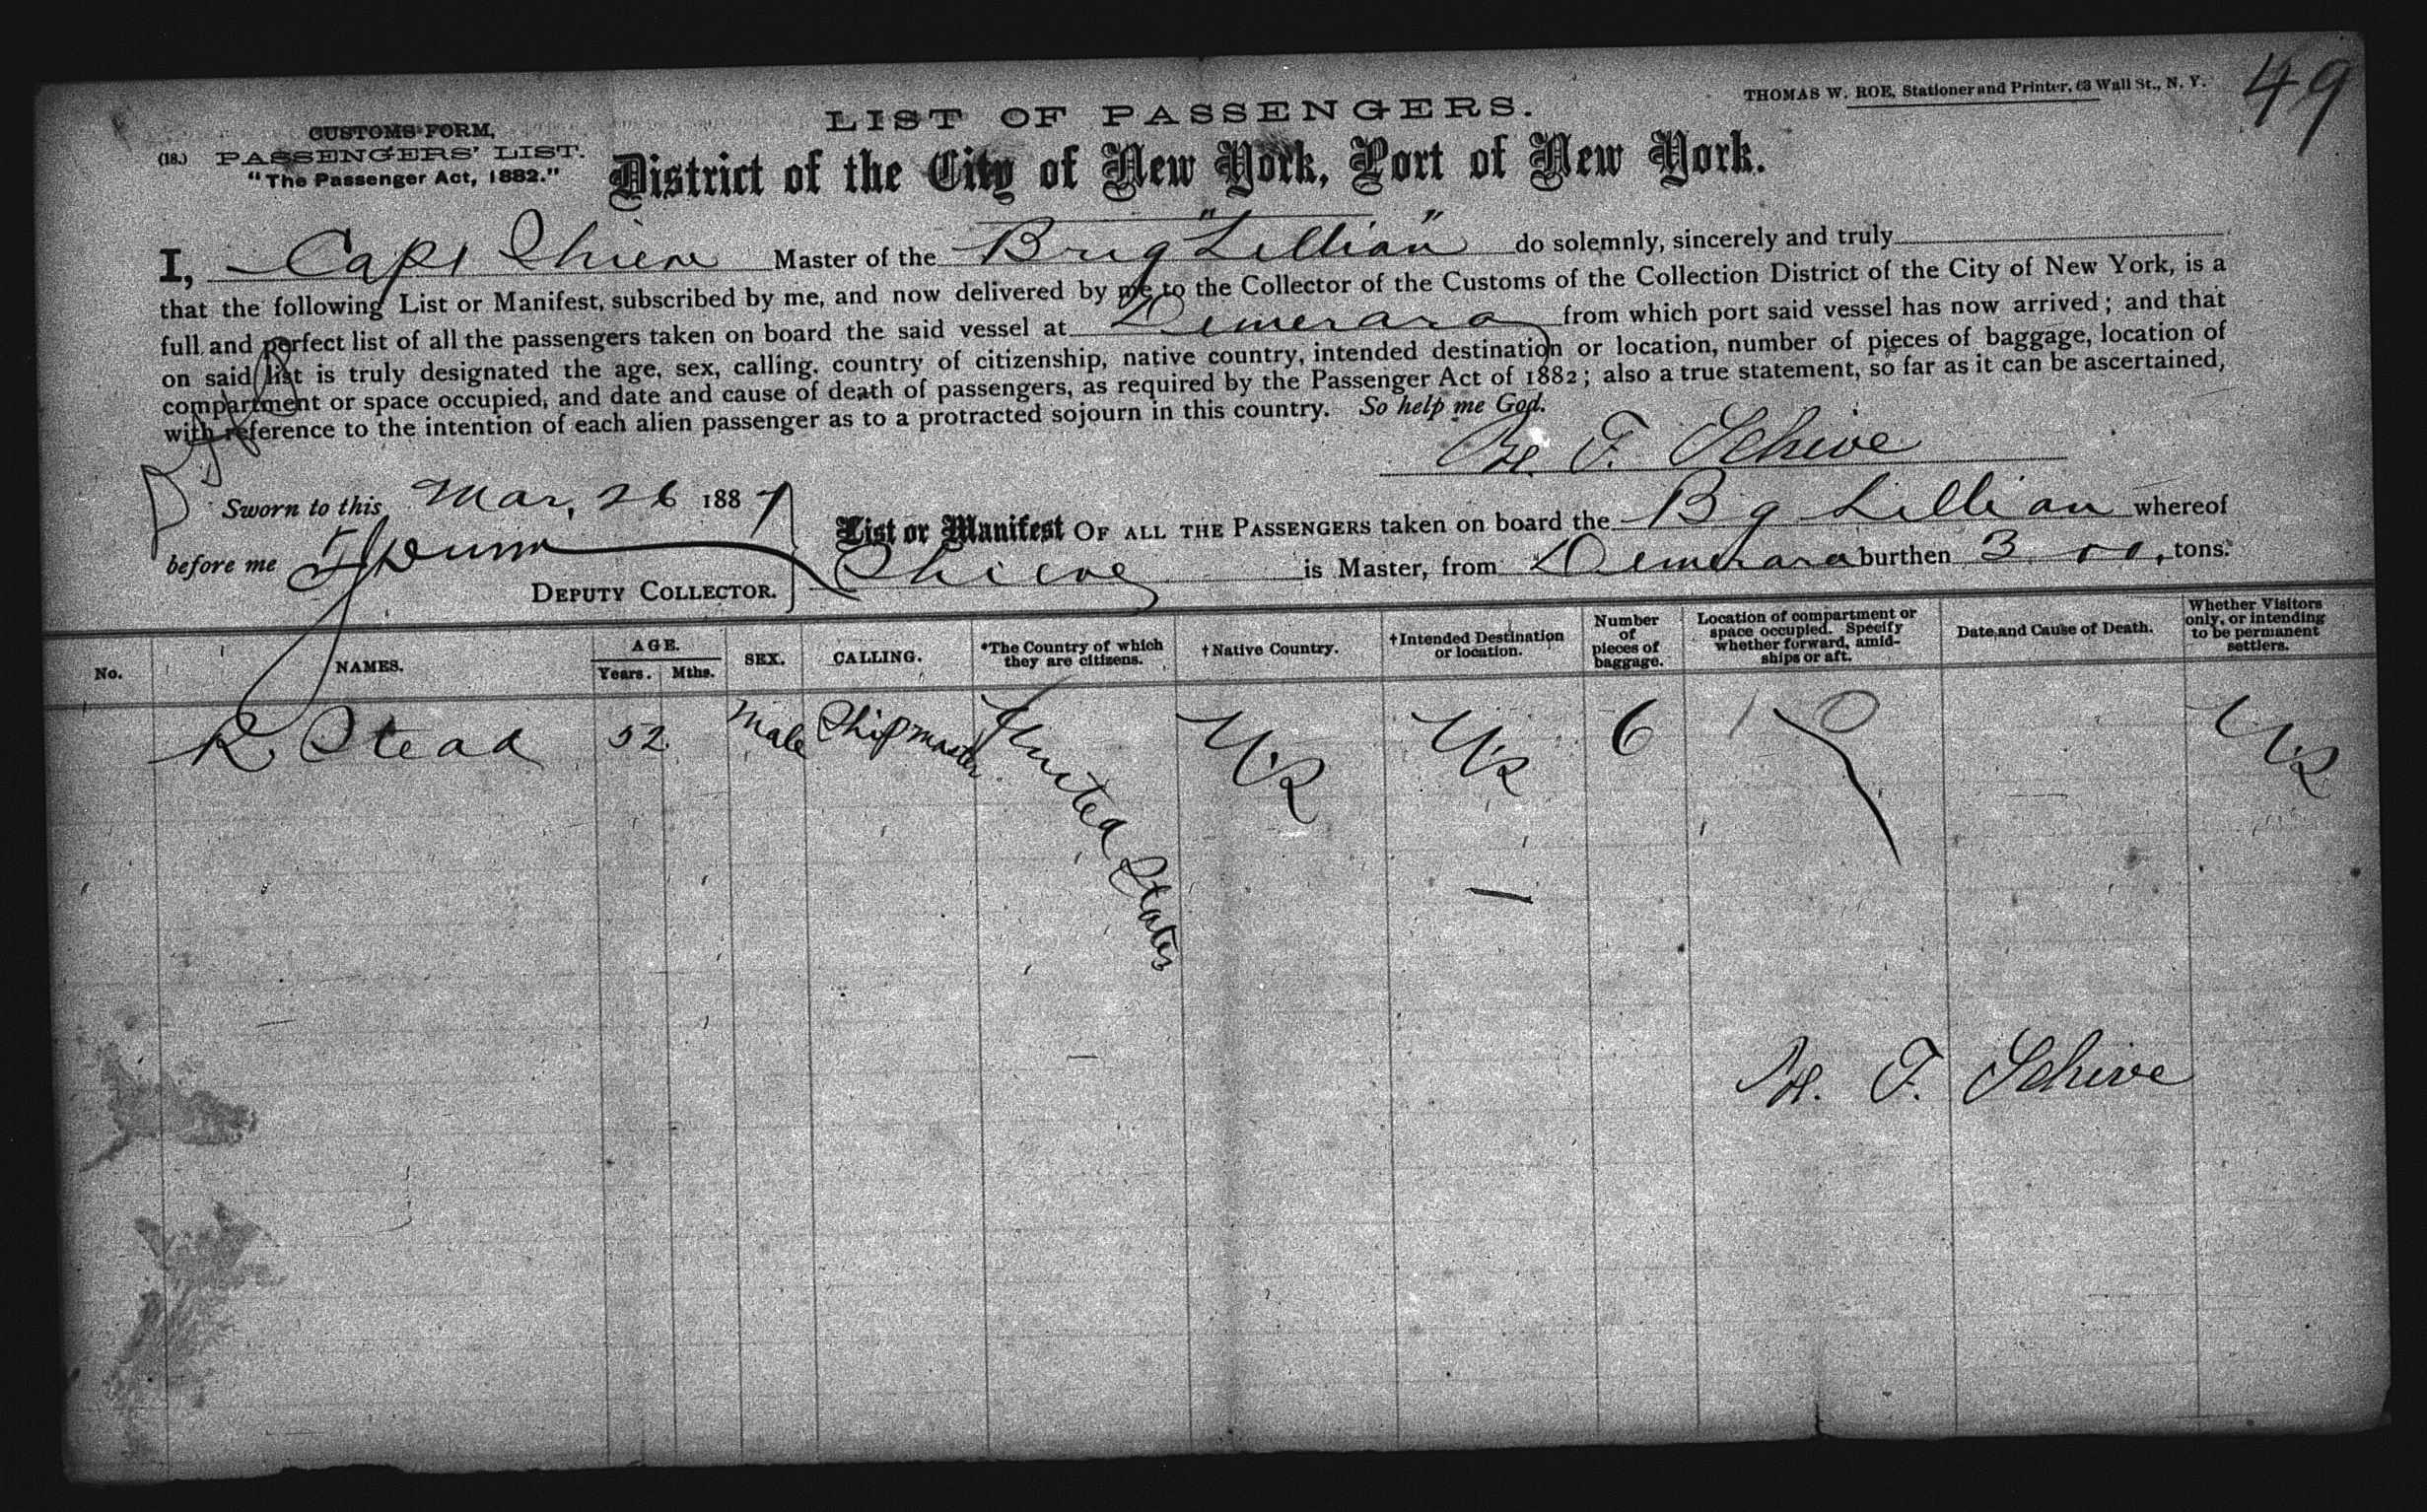 49
THOMAS W. ROE, Stationer and Printer, 63 Wall St., N. Y.
LIST OF PASSENGERS.
CUSTOMS FORM,
(18.) PASSENGERS' LIST.
"The Passenger Act, 1882."
District of the City of New York, Port of New York.
I, Capt Master of the Brig "Lillian" do solemnly, sincerely and truly
that the following List or Manifest, subscribed by me, and now delivered by me to the Collector of the Customs of the Collection District of the City of New York, is a
full and perfect list of all the passengers taken on board the said vessel at Demerara from which port said vessel has now arrived; and that
on said list is truly designated the age, sex, calling, country of citizenship, native country, intended destination or location, number of pieces of baggage, location of
compartment or space occupied, and date and cause of death of passengers, as required by the Passenger Act of 1882; also a true statement, so far as it can be ascertained,
with reference to the intention of each alien passenger as to a protracted sojourn in this country. So help me God.
F. Schive
Sworn to this Mar, 26 1887
before me
DEPUTY COLLECTOR.
List or Manifest OF ALL THE PASSENGERS taken on board the Bg Lillian whereof
is Master, from Demerara burthen 300, tons.
No. NAMES. AGE. Years. Mths. SEX. CALLING. *The Country of which they are citizens. †Native Country. †Intended Destination or location. Number of pieces of baggage. Location of compartment or space occupied. Specify whether forward, amidships or aft. Date and Cause of Death. Whether Visitors only, or intending to be permanent settlers.
R. Stead 52 Male Shipmaster United States 6
F. Schive